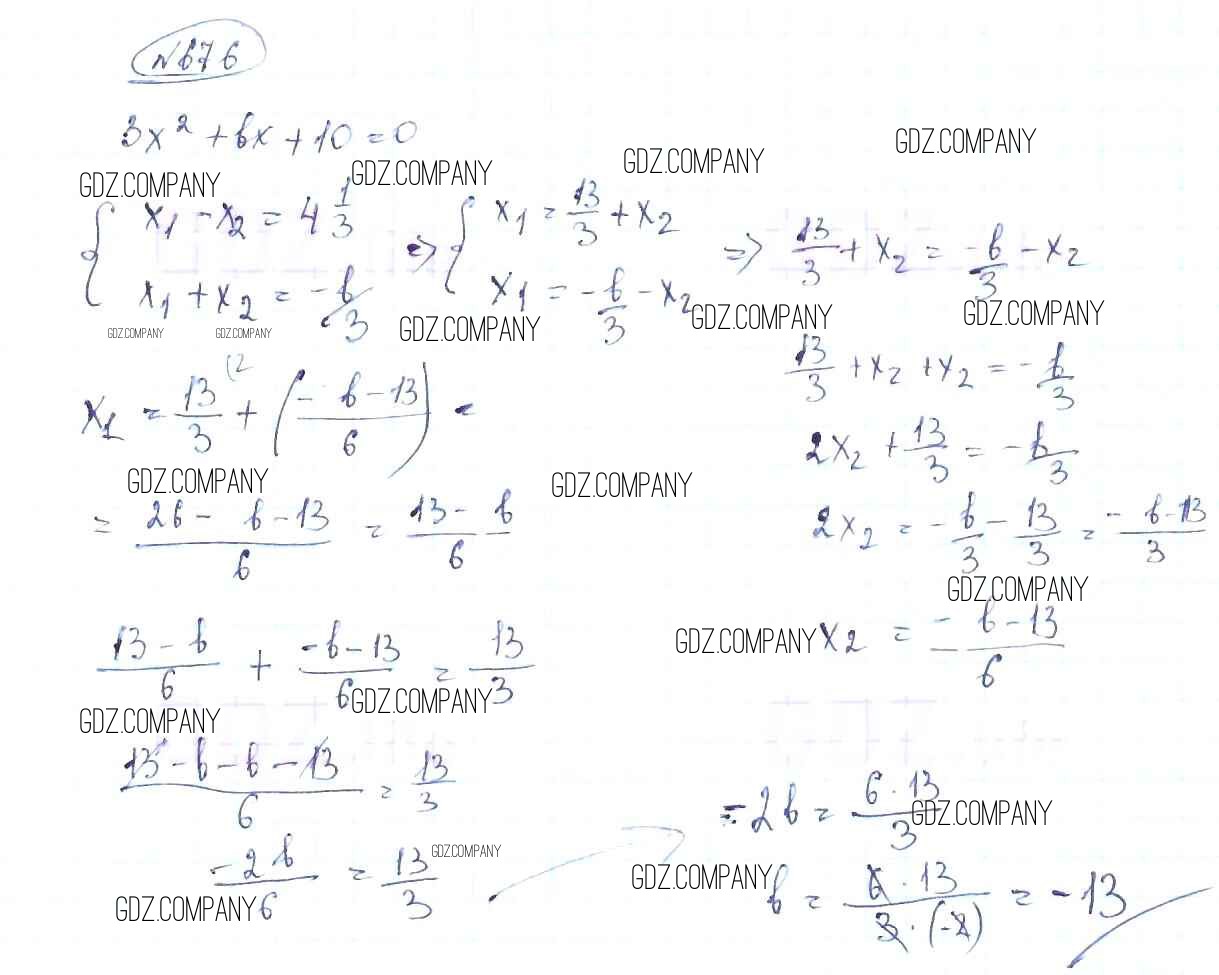 №676
3x² + bx + 10 = 0
GDZ.COMPANY GDZ.COMPANY GDZ.COMPANY GDZ.COMPANY
{ x₁ - x₂ = 4 1/3
x₁ + x₂ = -b/3
=> { x₁ = 13/3 + x₂
x₁ = -b/3 - x₂
=> 13/3 + x₂ = -b/3 - x₂
GDZ.COMPANY GDZ.COMPANY GDZ.COMPANY GDZ.COMPANY GDZ.COMPANY
13/3 + x₂ + x₂ = -b/3
2x₂ + 13/3 = -b/3
2x₂ = -b/3 - 13/3 = (-b-13)/3
GDZ.COMPANY
GDZ.COMPANY x₂ = (-b-13)/6
x₁ = 13/3 (2 + ((-b-13)/6) =
GDZ.COMPANY GDZ.COMPANY
= (26 - b - 13)/6 = (13 - b)/6
(13 - b)/6 + (-b-13)/6 = 13/3
GDZ.COMPANY GDZ.COMPANY
(13 - b - b - 13)/6 = 13/3
-2b/6 = 13/3
GDZ.COMPANY GDZ.COMPANY
-2b = (6 · 13)/3
GDZ.COMPANY
GDZ.COMPANY b = (6 · 13)/(3 · (-2)) = -13